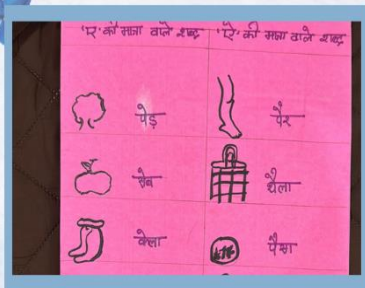 'ए' की मात्रा वाले शब्द
'ऐ' की मात्रा वाले शब्द
पेड़
पैर
सेब
थैला
केला
पैसा